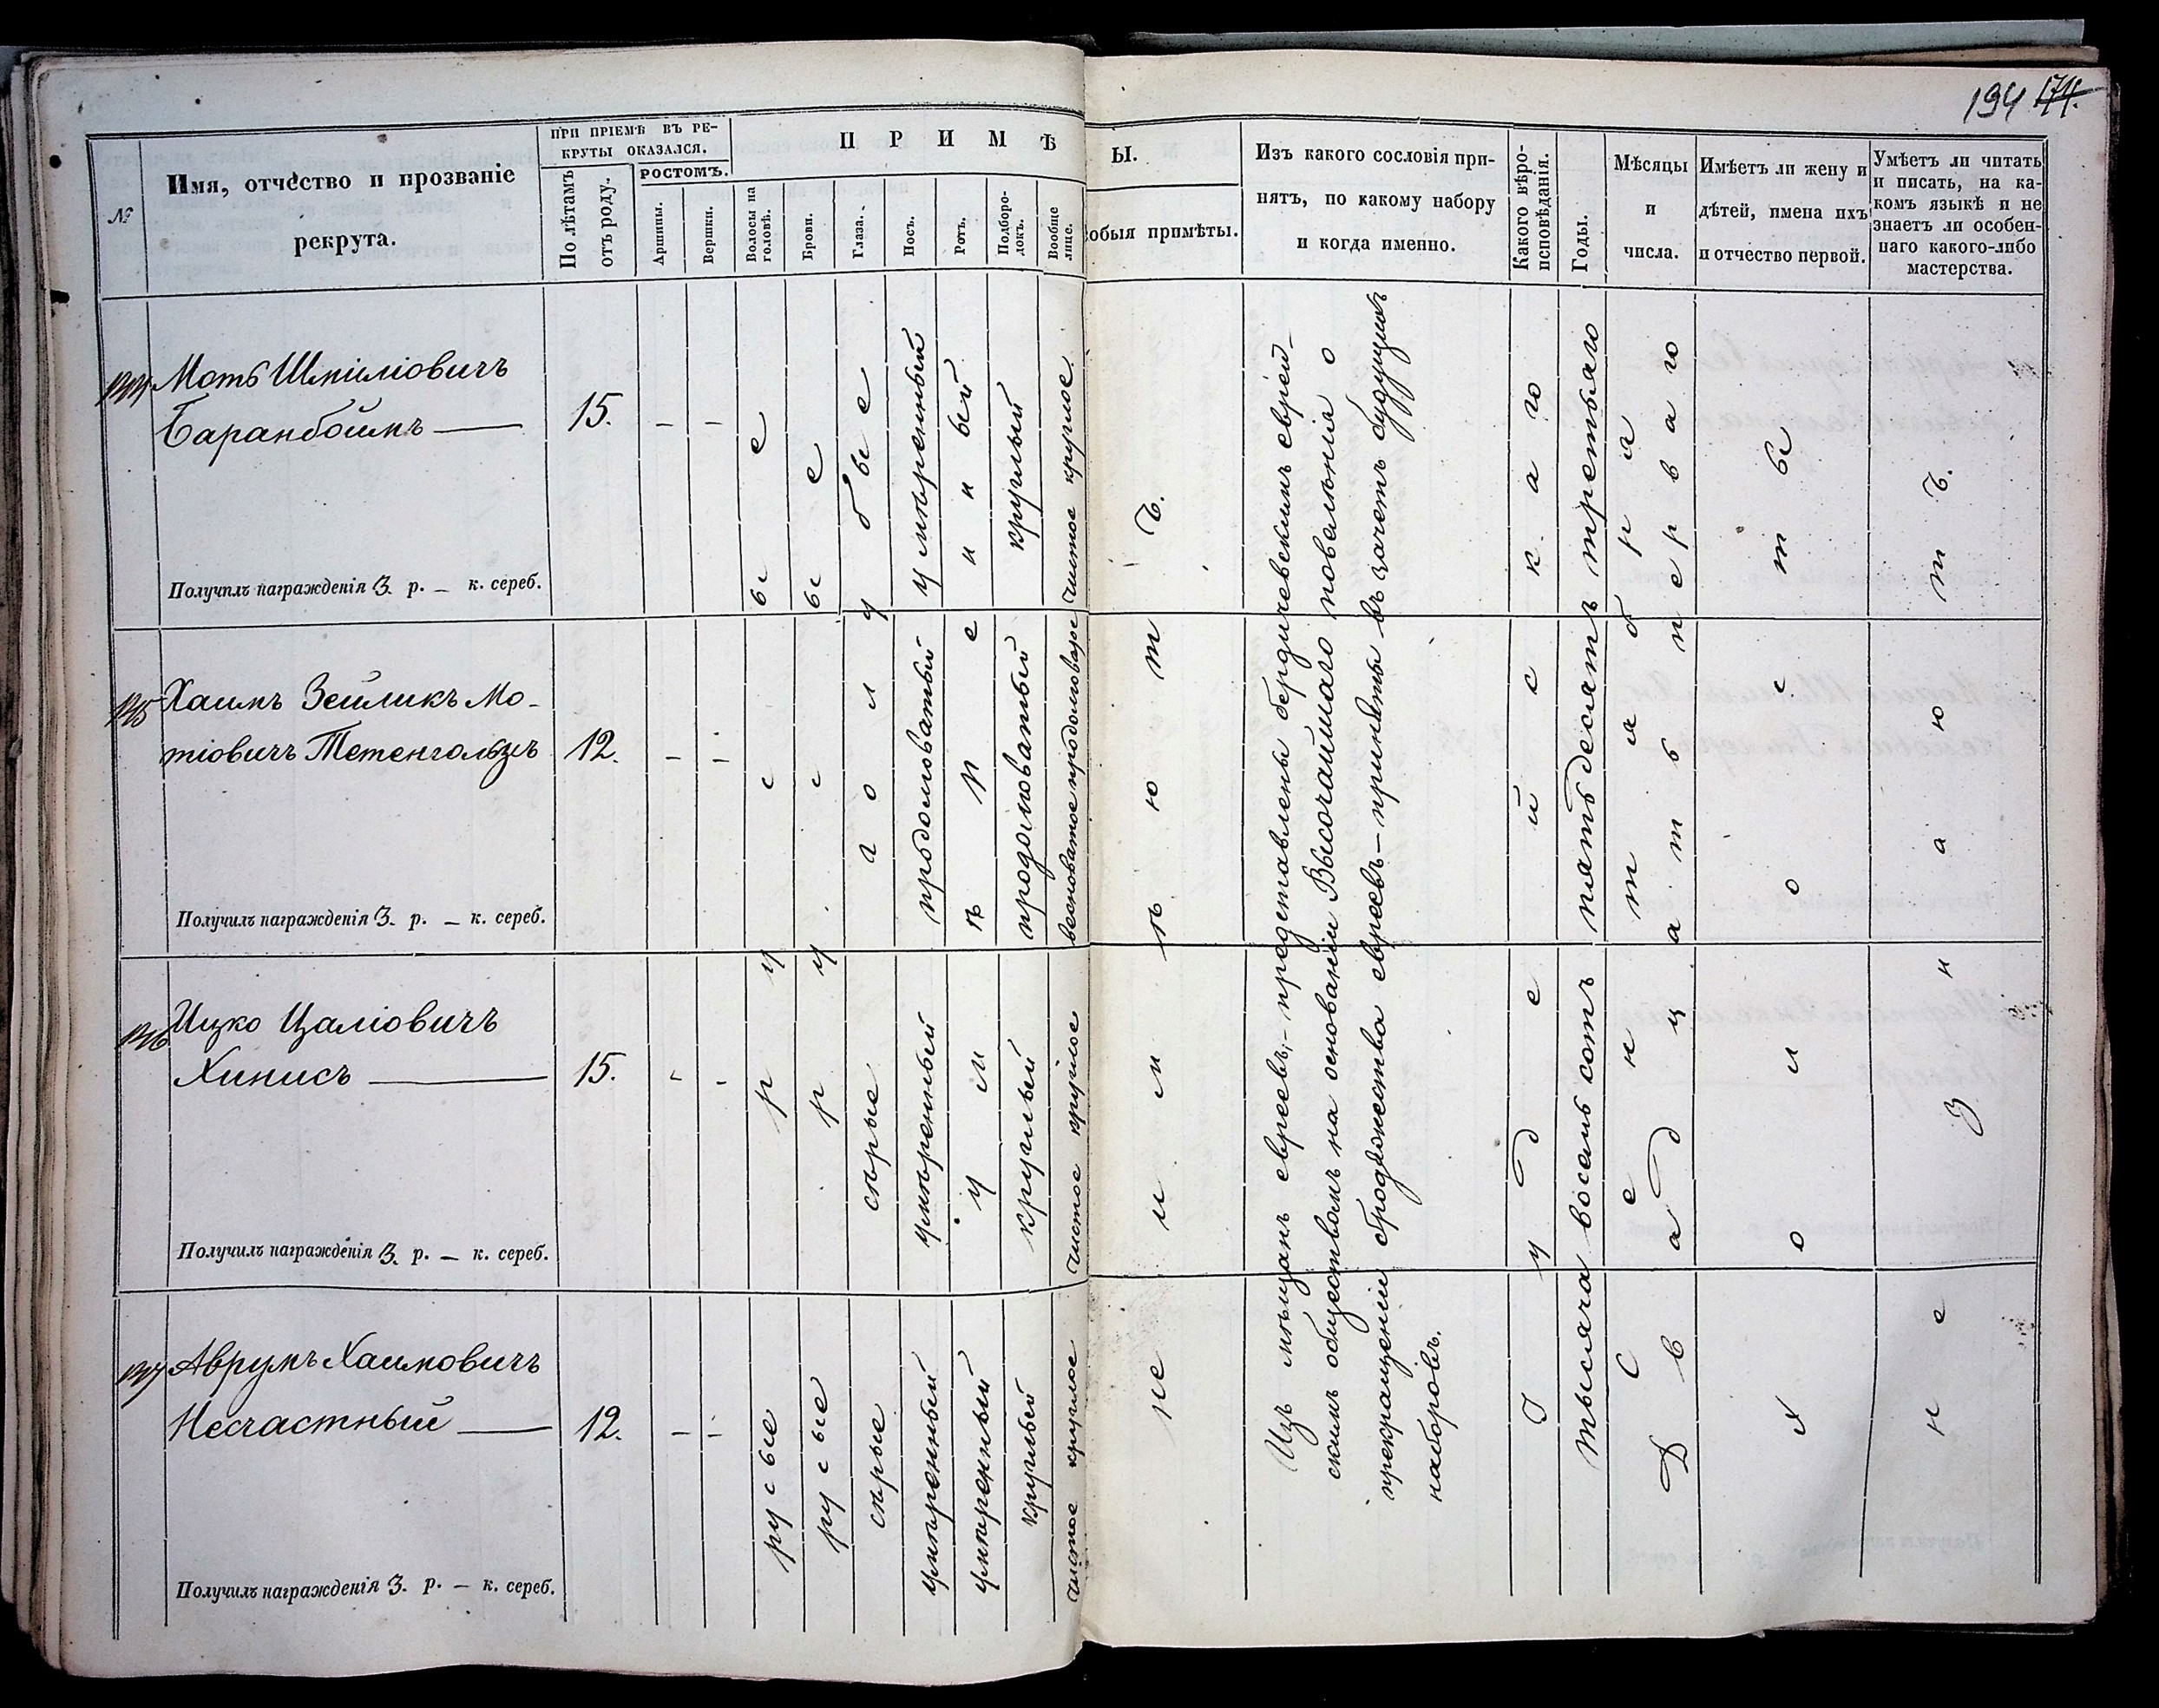 194 174.
№
Имя, отчество и прозваніе
рекрута.
ПРИ ПРІЕМѢ ВЪ РЕ-
КРУТЫ ОКАЗАЛСЯ.
По лѣтамъ
отъ роду.
РОСТОМЪ.
Аршины.
Вершки.
П Р И М Ѣ
Волосы на
головѣ.
Брови.
Глаза.
Носъ.
Ротъ.
Подборо-
докъ.
Вообще
лице.
Ы.
собыя примѣты.
Изъ какого сословія при-
нятъ, по какому набору
и когда именно.
Какого вѣро-
исповѣданія.
Годы.
Мѣсяцы
и
числа.
Имѣетъ ли жену и
дѣтей, имена ихъ
и отчество первой.
Умѣетъ ли читать
и писать, на ка-
комъ языкѣ и не
знаетъ ли особен-
наго какого-либо
мастерства.
Моть Шмиліовичъ
Баранбоймъ —
15.
— —
умѣренный
круглый
чистое круглое
Получилъ награжденія 3. р. — к. сереб.
Хаимъ Зейликъ Мо-
тіовичъ Тетенгольцъ
12.
— —
продолговатый
продолговатый
весноватое продолговатое
Получилъ награжденія 3. р. — к. сереб.
Ицко Цаліовичъ
Хинисъ —
15.
- -
сѣрые
умѣренный
круглый
чистое круглое
Получилъ награжденія 3. р. — к. сереб.
Аврумъ Хаимовичъ
Несчастный —
12.
— —
русые
русые
сѣрые
умѣренный
умѣренный
круглый
чистое круглое
Получилъ награжденія 3. р. — к. сереб.
голубые
не имѣютъ.
Изъ мѣщанъ евреевъ, — представлены бердичевскимъ еврей-
скимъ обществомъ на основаніи Высочайшаго повелѣнія о
прекращеніи бродяжества евреевъ — приняты въ зачетъ будущихъ
наборовъ.
Іудейскаго
тысяча восемь сотъ пятьдесятъ третьяго
Сентября
Двадцать перваго
Холосты
не знаютъ.